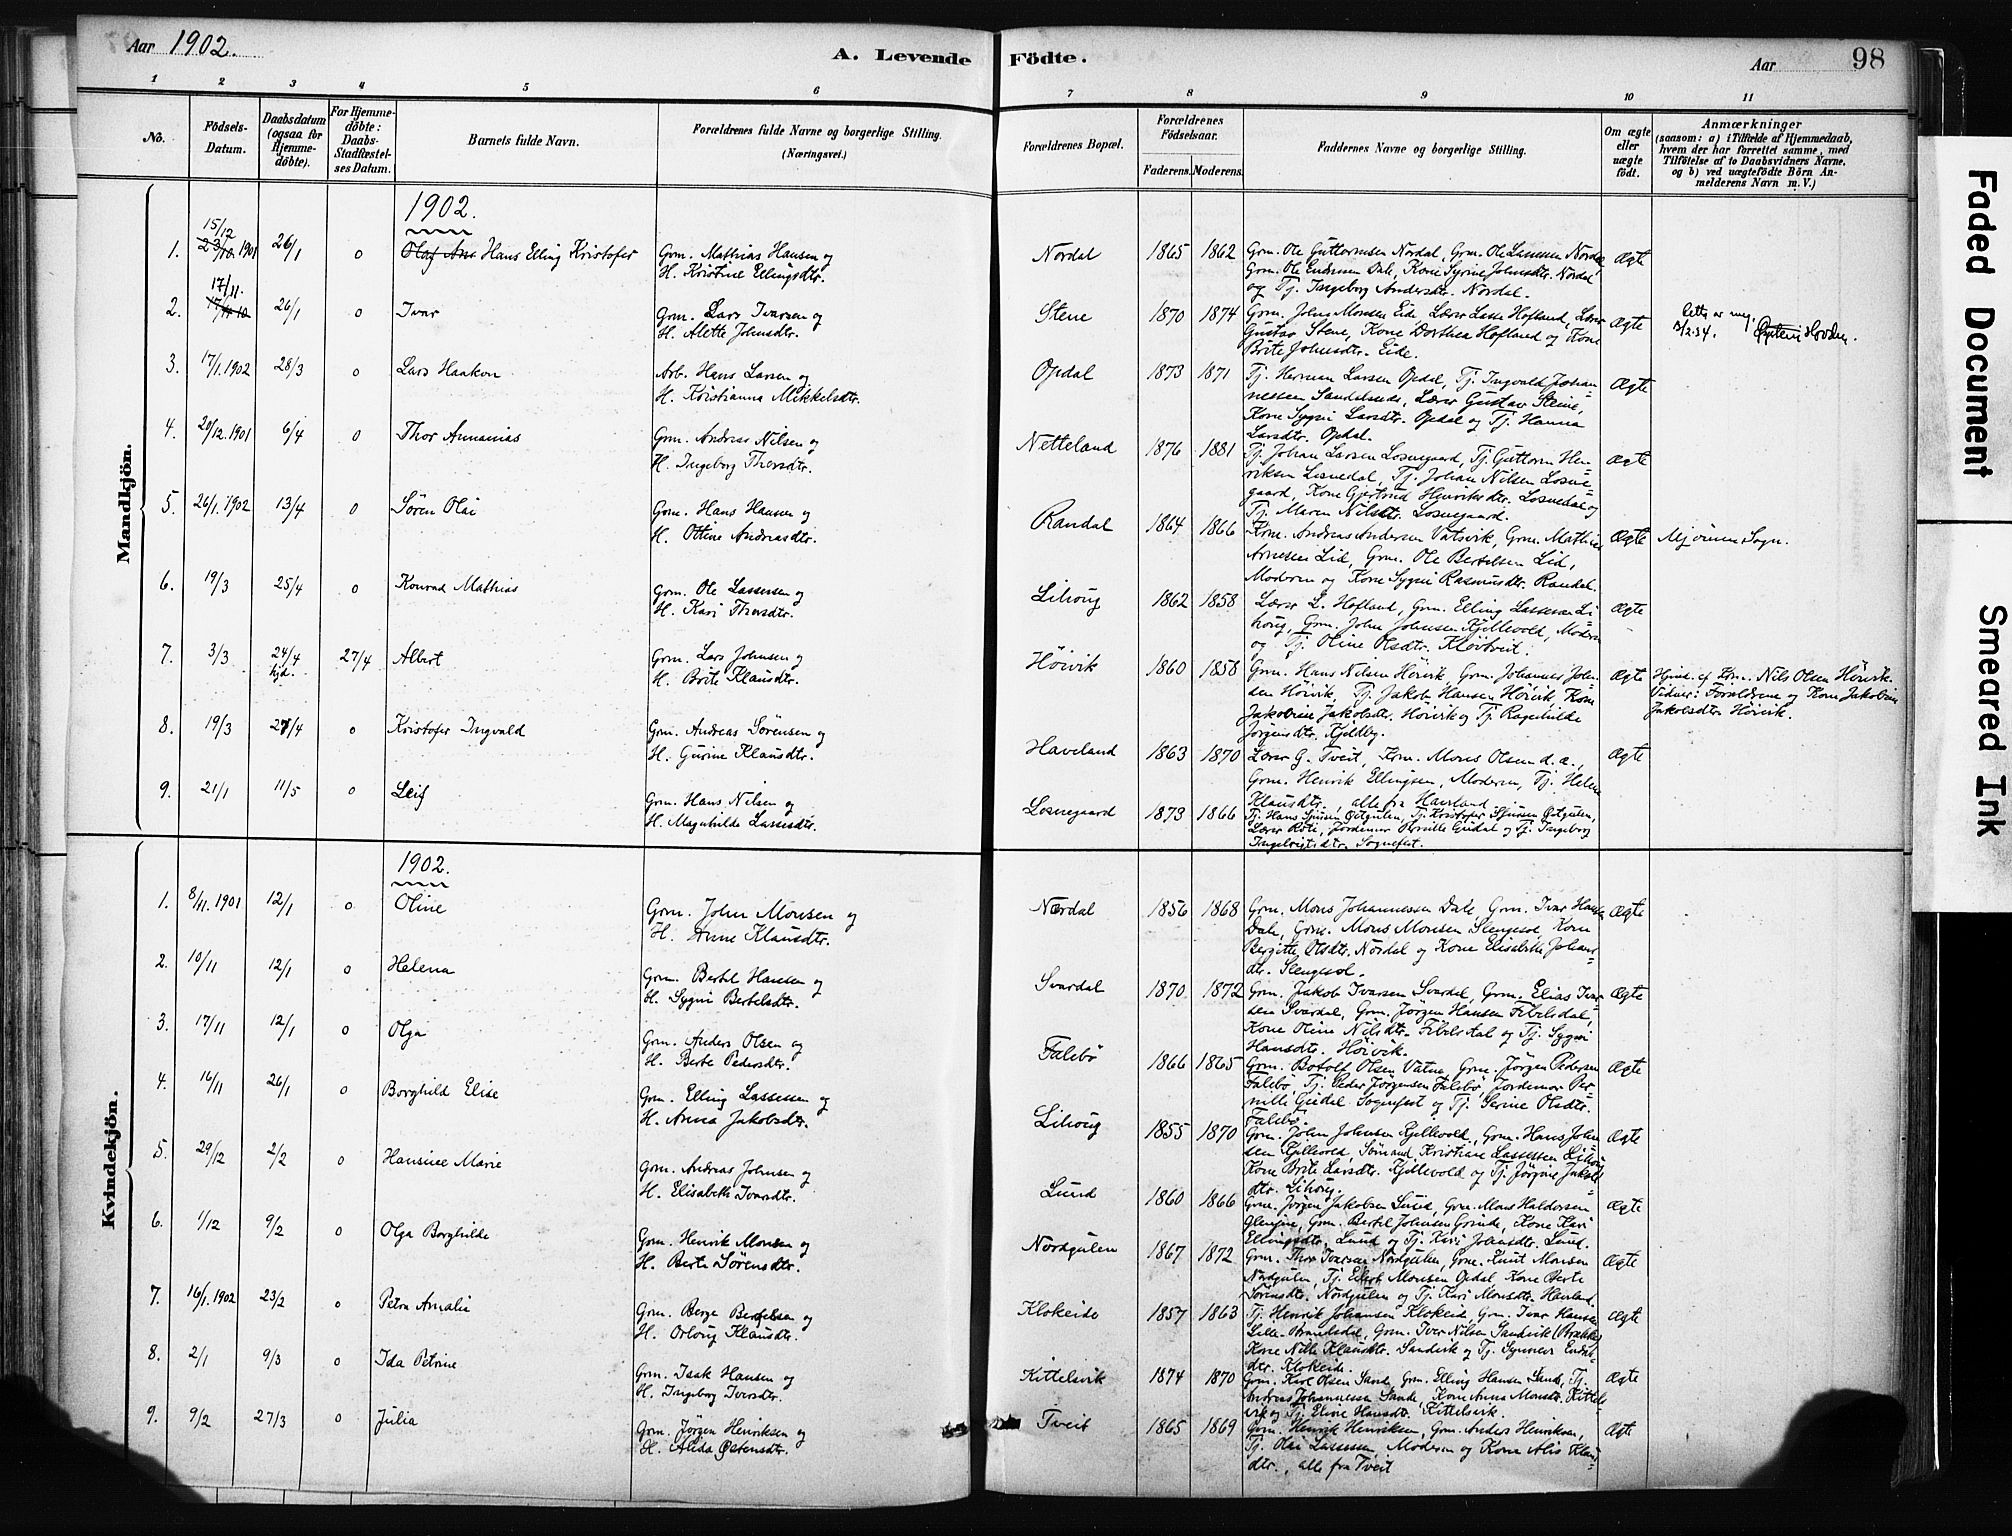 Aar 1902.
A. Levende Födte.
Aar
98
1 2 3 4 5 6 7 8 9 10 11
No.
Födsels-
Datum.
Daabsdatum
(ogsaa för
Hjemme-
döbte).
For Hjemme-
döbte:
Daabs-
Stadfæstel-
ses Datum.
Barnets fulde Navn.
Forældrenes fulde Navne og borgerlige Stilling.
(Næringsvei.)
Forældrenes Bopæl.
Forældrenes
Födselsaar.
Faderens. Moderens.
Faddernes Navne og borgerlige Stilling.
Om ægte
eller
uægte
födt.
Anmærkninger
(saasom: a) i Tilfælde af Hjemmedaab,
hvem der har forrettet samme, med
Tilföielse af to Daabsvidners Navne,
og b) ved uægtefödte Börn An-
melderens Navn m. V.)
Mandkjön.
1902.
1. 15/12 1901 26/1 o Hans Elling Kristofer
Grm. Mathias Hansen og
H. Kristine Ellingsdtr.
Nordal 1865 1862
Grm. Ole Guttormsen Nordal, Grm. Ole Lassesen Nordal,
Grm. Ole Endresen Dale, Kone Syrine Johnsdtr. Nordal
og Tj. Ingeborg Andersdtr. Nordal.
Ægte
2. 17/11. 26/1 o Ivar
Grm. Lars Ivarsen og
H. Alette Johnsdtr.
Stene 1870 1874
Grm. Johns Monsen Eide, Lærer Lasse Hofland, Lærer
Gustav Stene, Kone Dorthea Hofland og Kone
Brite Johnsdtr. Eide.
Ægte
3. 17/1. 1902 28/3 o Lars Haakon
Arb. Hans Larsen og
H. Kristianna Mikkelsdtr.
Opdal 1873 1871
Tj. Herman Larsen Opdal, Tj. Ingvald Johan-
nessen Sandelsnes, Lærer Gustav Stene,
Kone Sygni Larsdtr. Opdal og Tj. Hanna
Larsdtr. Opdal.
Ægte
4. 20/12. 1901 6/4 o Thor Annanias
Grm. Andreas Nilsen og
H. Ingeborg Thorsdtr.
Netteland 1876 1881
Tj. Johan Larsen Losnegaard, Tj. Guttorm Hen-
riksen Losnedal, Tj. Johan Nilsen Losne-
gaard, Kone Gjertrud Henriksdtr. Losnedal og
Tj. Maren Nilsdtr. Losnegaard.
Ægte
5. 26/1. 1902 13/4 o Sören Olai
Grm. Hans Hansen og
H. Ottine Andreasdtr.
Randal 1864 1866
Grm. Andreas Andersen Vatsvik, Grm. Mathias
Arnesen Lid, Grm. Ole Bertelsen Lid,
Moderen og Kone Sygni Rasmusdtr. Randal.
Ægte
Mjömen Sogn.
6. 19/3 25/4 o Konrad Mathias
Grm. Ole Lassesen og
H. Kari Thorsdtr.
Lihoug 1862 1858
Lærer L. Hofland, Grm. Elling Lassesen Li-
houg, Grm. John Johnsen Kjellevold, Moderen
og Tj. Oline Olsdtr. Klövtveit.
Ægte
7. 3/3 24/4 hjd. 27/4 Albert
Grm. Lars Johnsen og
H. Brite Klausdtr.
Höivik 1860 1858
Grm. Hans Nilsen Höivik, Grm. Johannes John-
sen Höivik, Tj. Jakob Hansen Höivik, Kone
Jakobine Jakobsdtr. Höivik og Tj. Ragnhilde
Jörgensdtr. Kjeldby.
Ægte
Hjmd. af Grm. Nils Olsen Höivik.
Vidner: Forældrene og Kone Jakobine
Jakobsdtr. Höivik.
8. 19/3 27/4 o Kristofer Ingvald
Grm. Andreas Sörensen og
H. Gurine Klausdtr.
Haveland 1863 1870
Lærer G. Tveit, Grm. Mons Olsen d. æ.,
Grm. Henrik Ellingsen, Moderen, Tj. Helene
Klausdtr., alle fra Haveland
Ægte
9. 21/1 11/5 o Leif
Grm. Hans Nilsen og
H. Magnhilde Lassesdtr.
Losnegaard 1873 1866
Tj. Hans Sjursen Östgulen, Tj. Kristofer Sjursen Östgulen,
Lærer Röte, Jordemor Pernille Gudal og Tj. Ingeborg
Ingebrigtsdtr. Sognefest.
Kvindekjön.
1902.
1. 8/11. 1901 12/1 o Oline
Grm. John Monsen og
H. Anne Klausdtr.
Nordal 1856 1868
Grm. Mons Johannessen Dale, Grm. Ivar Hansen
Dale, Grm. Mons Monsen Slengesol, Kone
Bergitte Olsdtr. Nordal og Kone Elisabeth Johans-
dtr. Slengesol.
Ægte
2. 10/11 12/1 o Helena
Grm. Bertel Hansen og
H. Sygni Bertelsdtr.
Svardal 1870 1872
Grm. Jakob Ivarsen Svardal, Grm. Elias Ivar-
sen Svardal, Grm. Jörgen Hansen Fibelsdal,
Kone Oline Nilsdtr. Fibelsdal og Tj. Sygni
Hansdtr. Höivik.
Ægte
3. 17/11 12/1 o Olga
Grm. Anders Olsen og
H. Berte Pedersdtr.
Falebö 1866 1865
Grm. Botolf Olsen Vatne, Grm. Jörgen Pedersen
Falebö, Tj. Peder Jörgensen Falebö, Jordemor Per-
nille Gudal Sognefest og Tj. Serine Olsdtr.
Falebö.
Ægte
4. 16/11 26/1 o Borghild Elise
Grm. Elling Lassesen og
H. Anna Jakobsdtr.
Lihoug 1855 1870
Grm. John Johnsen Kjellevold, Grm. Hans John-
sen Kjellevold, Sömand Kristian Lassesen Lihoug
Kone Brite Larsdtr. Kjellevold og Tj. Jörgine Jakobs-
dtr. Lihoug.
Ægte
5. 29/12 2/2 o Hansine Marie
Grm. Andreas Johnsen og
H. Elisabeth Ivarsdtr.
Lund 1860 1866
Grm. Jörgen Jakobsen Lund, Grm. Mons Haldorsen
Glenjene, Grm. Bertel Johnsen Grinde, Kone Kari
Ellingsdtr. Lund og Tj. Kari Johnsdtr. Lund.
Ægte
6. 1/12 9/2 o Olga Borghilde
Grm. Henrik Monsen og
H. Berte Sörensdtr.
Nordgulen 1867 1872
Grm. Thor Ivarsen Nordgulen, Grm. Knut Monsen
Nordgulen, Tj. Monsen Opdal, Kone Berte
Sörensdtr. Nordgulen og Tj. Kari Monsdtr. Haveland.
Ægte
7. 16/1. 1902 23/2 o Petra Amalie
Grm. Berge Bertelsen og
H. Orloug Klausdtr.
Klokeide 1857 1863
Tj. Henrik Johansen Klokeide, Grm. Ivar Hansen
Lille-Brandsdal, Grm. Iver Nilsen Sandvik (Brække)
Kone Nille Klausdtr. Sandvik og Tj. Synneve Endres-
dtr. Klokeide.
Ægte
8. 2/1 9/3 o Ida Petrine
Grm. Isak Hansen og
H. Ingeborg Iversdtr.
Kittelsvik 1874 1870
Grm. Karl Olsen Sande, Grm. Elling Hansen Sande, Tj.
Andreas Johannessen Sande, Kone Anna Monsdtr. Kittels-
vik og Tj. Eline Hansdtr. Kittelsvik.
Ægte
9. 9/2 27/3 o Julia
Grm. Jörgen Henriksen og
H. Alida Östensdtr.
Tveit 1865 1869
Grm. Henrik Henriksen, Grm. Anders Henriksen,
Tj. Olai Lassesen, Moderen og Kone Alis Klaus-
dtr., alle fra Tveit
Ægte
Faded Document
Smeared Ink